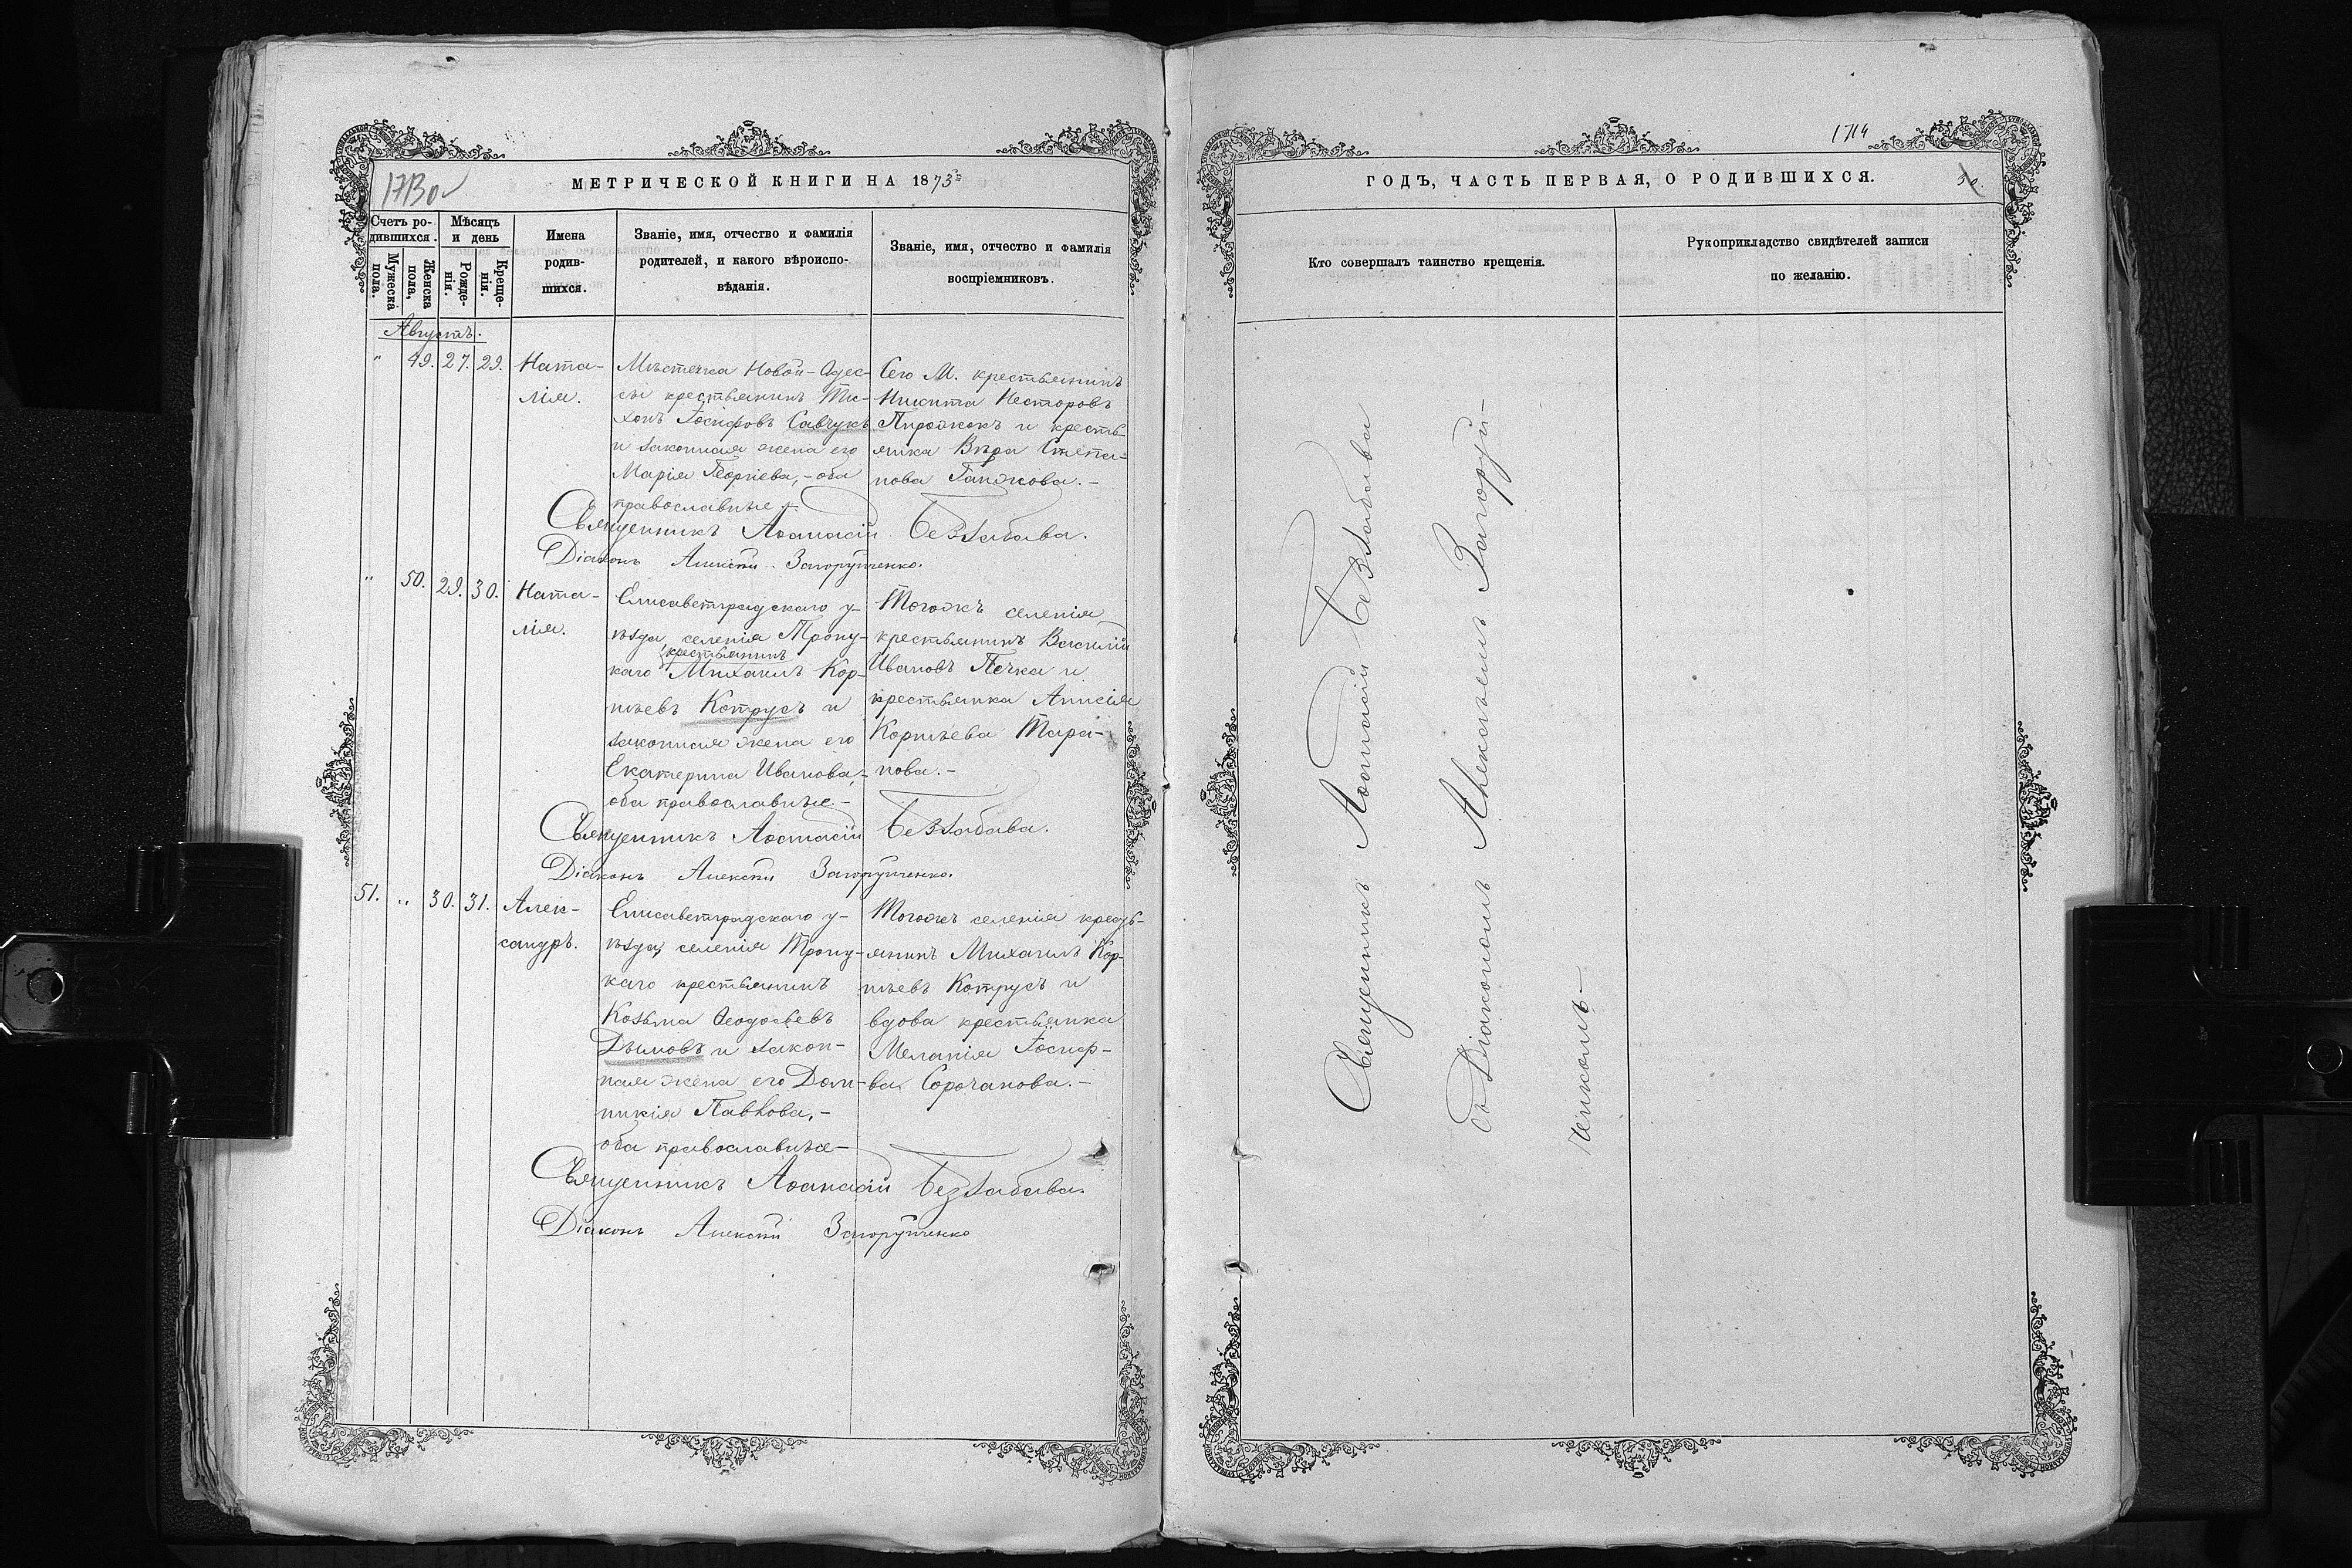 1713 об
МЕТРИЧЕСКОЙ КНИГИ НА 1873й
Счетъ ро-
дившихся.
Мужеска
пола.
Женска
пола,
Мѣсяцъ
и день
Рожде-
нія.
Креще-
нія.
Имена
родив-
шихся.
Званіе, имя, отчество и фамилія
родителей, и какого вѣроиспо-
вѣданія.
Званіе, имя, отчество и фамилія
воспріемниковъ.
Августъ.
" 49. 27. 29.
Ната-
лія.
Мѣстечка Новой-Одес-
сы крестьянинъ Ти-
хонъ Іосифовъ Савчукъ
и законная жена его
Марія Георгіева,- оба
православные.-
Сего М. крестьянинъ
Никита Несторовъ
Пирожокъ и кресть-
янка Вѣра Степа-
нова Ганжова.-
Священникъ Аѳанасій Беззабава.
Діаконъ Алексѣй Загоруйченко.
" 50. 29. 30.
Ната-
лія.
Елисаветградскаго у-
ѣзда, селенія Троиц-
крестьянинъ
каго Михаилъ Кор-
ніевъ Котрусъ и
законная жена его
Екатерина Иванова,-
оба православные.-
Тогожъ селенія
крестьянинъ Василій
Ивановъ Печка и
крестьянка Анисія
Корніева Тара-
нова.-
Священникъ Аѳанасій Беззабава.
Діаконъ Алексѣй Загоруйченко.
51. " 30. 31.
Алек-
сандръ.
Елисаветградскаго у-
ѣзда, селенія Троиц-
каго крестьянинъ
Козьма Ѳеодосьевъ
Дымовъ и закон-
ная жена его Дом-
никія Павлова,-
оба православные-
Тогожъ селенія кресть-
янинъ Михаилъ Кор-
ніевъ Котрусъ и
вдова крестьянка
Меланія Іосиф-
ва Сорочанова.-
Священникъ Аѳанасій Беззабава.
Діаконъ Алексѣй Загоруйченко
1714
ГОДЪ, ЧАСТЬ ПЕРВАЯ, О РОДИВШИХСЯ.
30.
Кто совершалъ таинство крещенія.
Рукоприкладство свидѣтелей записи
по желанію.
Священникъ Аѳанасій Беззабава
съ Діакономъ Алексѣемъ Загоруй-
ченкомъ-